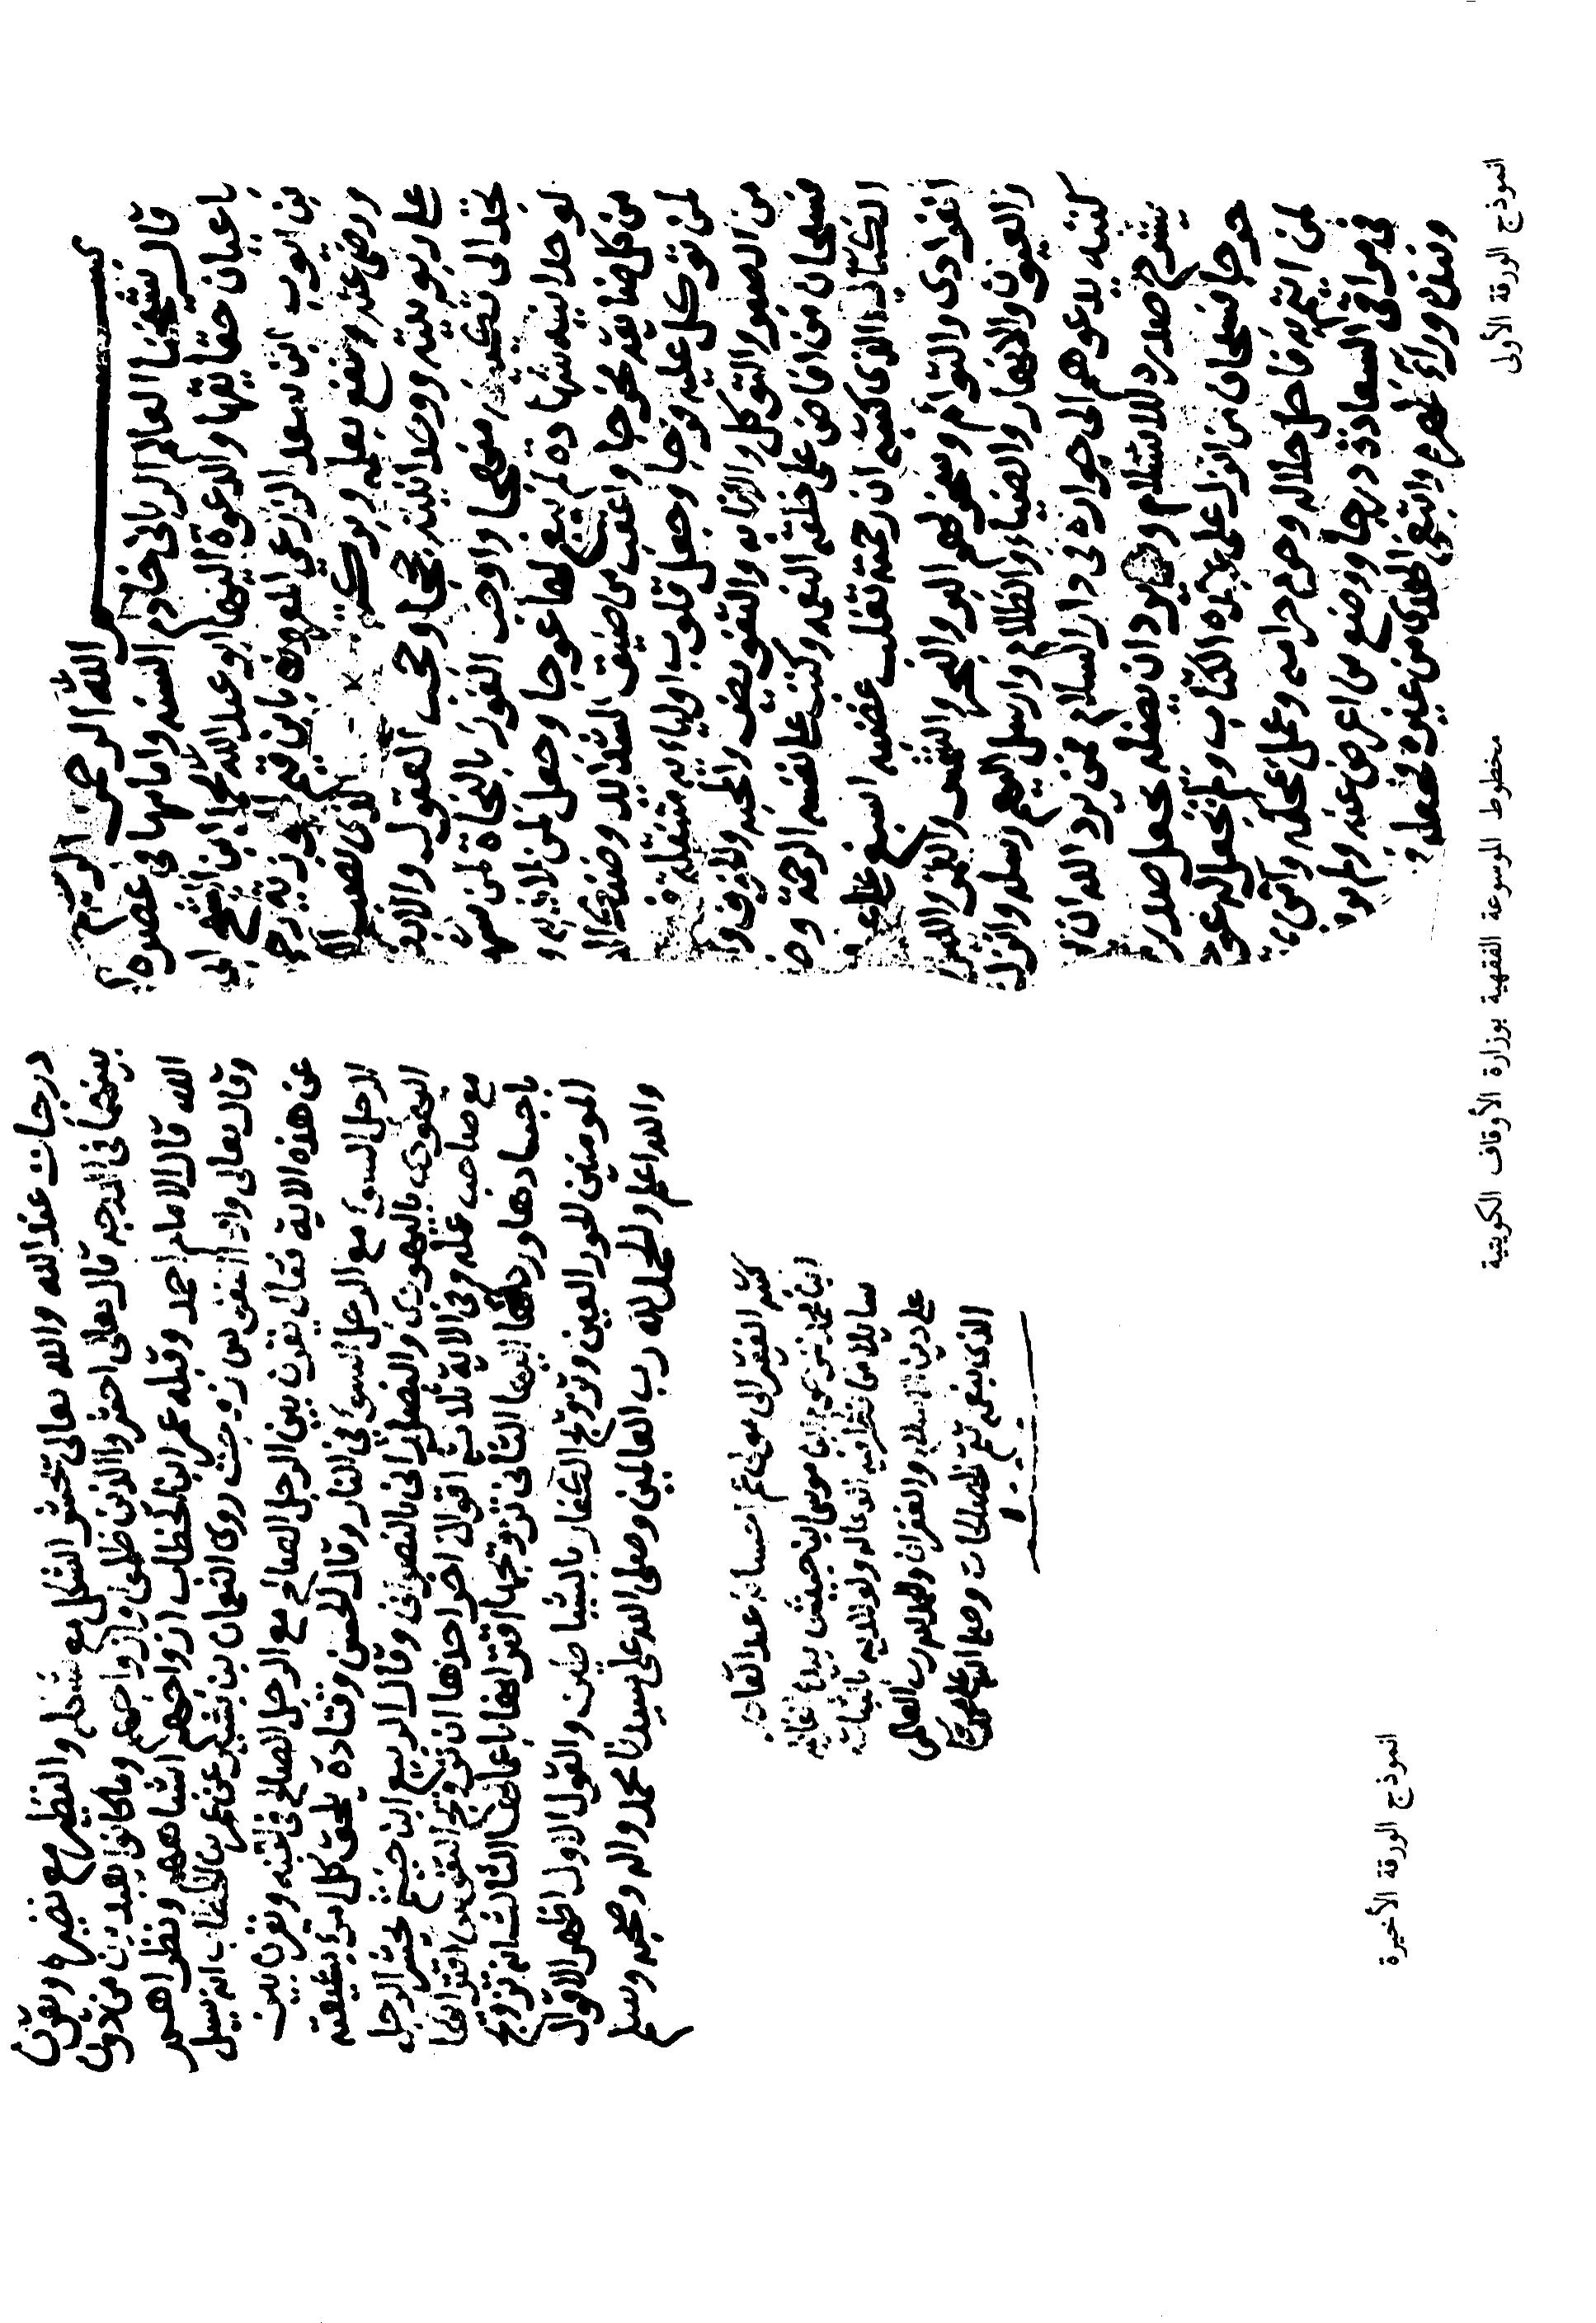 بسم الله الرحمن الرحيم
قال شيخنا العالم الرباني خادم السنه وامامها في عصره
باعيان حقايقها والدعوة اليها ابو عبد الله محمد ابن الشيخ ابي
بن ايوب ابن سعد الزرعي المعروف بابن قيم الجوزية رحمه
ورضى عنه ونفع بعلمه وبركته الذي نصب
على ربوبيته ووحدانيته حججا وحجب العقول والابصار
تجد الى تكييفه منهجا واوجب الفوز بالنجاة لمن شهد
لوحدانيته شهادة لم يبغ لها عوجا وجعل لمن
من كل ضايقة مخرجا واعقب من ضيق الشدايد
لمن توكل عليه فرجا وجعل قلوب اوليائه متنقلة
من الصبر والتوكل والانابه والتفويض والمحبه والخوف
فسبحان من افاض على خلقه النعمه وكتب على نفسه الرحمة
الكتاب الذي كتبه ان رحمته تغلب غضبه اسبغ على
الفرادى والتوأم وسخر لهم البر والبحر والشمس والقمر والليل
والعيون والانهار والضياء والظلام وارسل اليهم رسله وانزل
كتبه يدعوهم الى جواره في دار السلام فمن يرد الله ان
يشرح صدره للاسلام ومن يرد ان يضله يجعل صدره
حرجا فسبحان من انزل على عبده الكتاب ولم يجعل له عوجا
لمن ائتم به فاحل حلاله وحرم حرامه وعمل بمحكمه
في مراقي السعادة درجا ووضع من اعرض عنه ولم
ونبذه وراء ظهره وابتغى الهدى من غيره فجعله
انموذج الورقة الأولى
مخطوط الموسوعة الفقهية بوزارة الأوقاف الكويتية
درجات عند الله والله تعالى يحشر الشكل مع شكله والنظير مع نضيره ويقرن
بينهما في الدرجه قال تعالى احشروا الذين ظلموا وازواجهم وما كانوا يعبدون من دون
الله قال الامام احمد وقبله عمر ابن الخطاب ازواجهم اشباههم ونظراهم
وقال تعالى واذا النفوس زوجت روى النعمان بن بشير عن عمر بن الخطاب انه سيل
عن هذه الاية فقال يقرن بين الرجل الصالح مع الرجل الصالح في الجنه ويقرن بين
الرجل السوء مع الرجل السوء في النار وقال الحسن وقتادة يلحق كل امرء بشيعته
اليهودي باليهودي والنصراني بالنصراني وقال الربيع ابن خيثم يحشر الرجل
مع صاحب عمله وفي الاية ثلاثة اقوال اخر احدها ان تزويج النفوس اقترانها
باجسادها وردها اليها الثاني تزويجها اقترانها باعمالها الثالث انه تزويج
المومنين الحور العين وتزويج الكفار بالشياطين والقول الاول اظهر الاقوال
والله اعلم والحمد لله رب العالمين وصلى الله على سيدنا محمد واله وصحبه وسلم
كتبه الفقير الى مولاه
على دين الاسلام والغفران والحمد لله رب العالمين
الذي بنعمته تتم الصالحات وصلى الله على محمد
انموذج الورقة الأخيرة